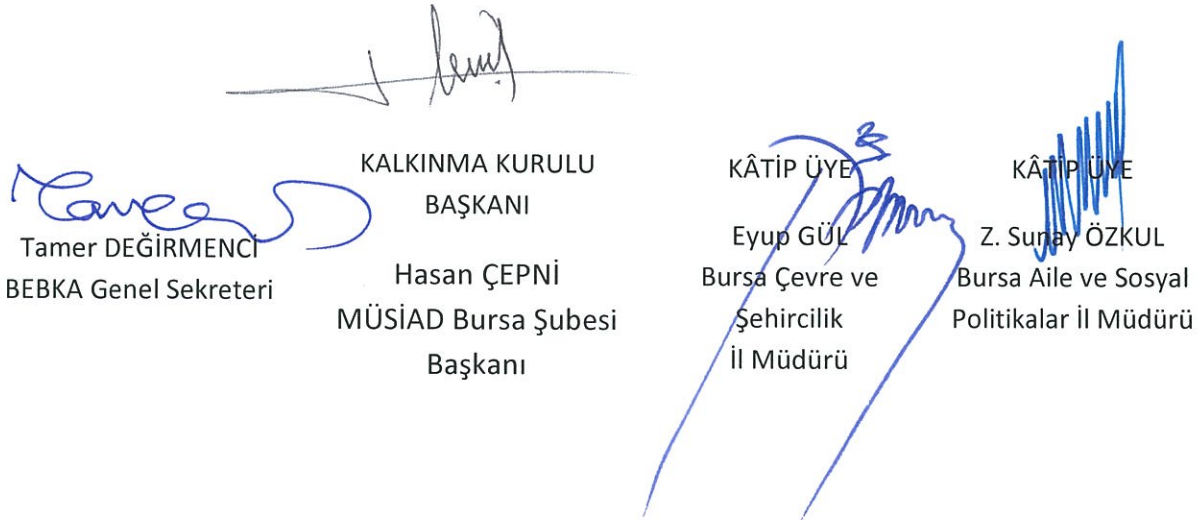 Tamer DEĞİRMENCİ
BEBKA Genel Sekreteri
KALKINMA KURULU
BAŞKANI
Hasan ÇEPNİ
MÜSİAD Bursa Şubesi
Başkanı
KÂTİP ÜYE
Eyup GÜL
Bursa Çevre ve
Şehircilik
İl Müdürü
KÂTİP ÜYE
Z. Sunay ÖZKUL
Bursa Aile ve Sosyal
Politikalar İl Müdürü